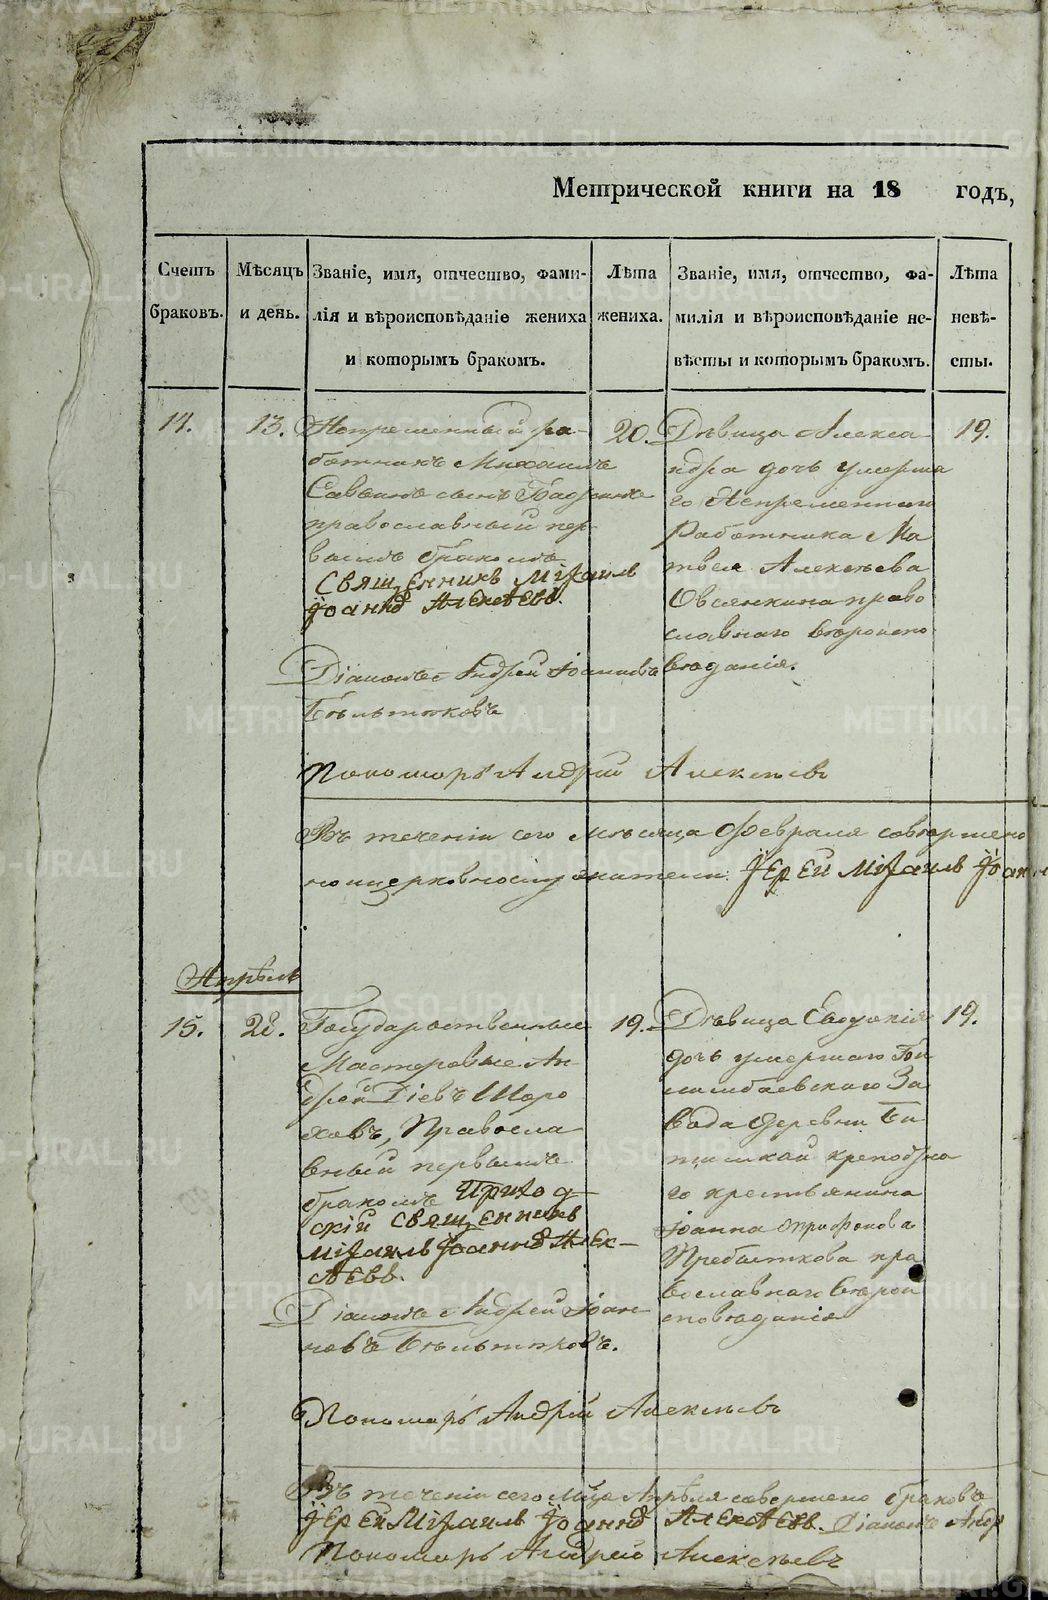 Метрической книги на 18 годъ,
Счетъ браковъ.
Мѣсяцъ и день.
Званіе, имя, отчество, фами-
лія и вѣроисповѣданіе жениха
и которымъ бракомъ.
Лѣта жениха.
Званіе, имя, отчество, фа-
милія и вѣроисповѣданіе не-
вѣсты и которымъ бракомъ.
Лѣта невѣ-
сты.
14.
13.
Непременный ра-
ботникъ Михаилъ
Савинъ сынъ
православный пер-
вымъ бракомъ
Священникъ Міхаилъ
Іоаннъ Алексѣевъ.
Діаконъ Андрей Іоанновъ
Пономарь Андрей Алексѣевъ
20.
Дѣвица Алекса
ндра дочь умерша
го Непременнаго
Работника Ма
твея Алексѣева
Овсянкина право
славнаго вѣроиспо
вѣданія.
19.
Въ теченіи сего мѣсяца Февраля совершено
Іерей Міхаилъ Іоанн
Апрѣль
15.
28.
Государственные
Мастеровые Ан
дрей Діевъ Шоро
ховъ, Правосла
вный первымъ
бракомъ Приход
скій Священникъ
Міхаилъ Іоаннъ Алек-
сѣевъ.
Діаконъ Андрей Іоан
новъ
Пономарь Андрей Алексѣевъ
19.
Дѣвица Евдокія
дочь умершаго Би
лимбаевскаго За
вода Деревни Би
крепостна
го крестьянина
Іоанна
пра
вославнаго вѣрои
сповѣданія
19.
Въ теченіи сего м-ца Апрѣля совершено браковъ
Іерей Міхаилъ Іоаннъ Алексѣевъ. Діаконъ Андр
Пономарь Андрей Алексѣевъ
METRIKI.GASO-URAL.RU